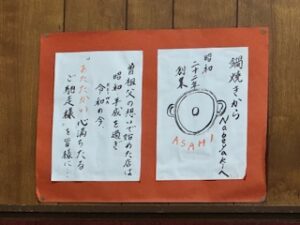 鍋焼きから
Nabeyakiへ
昭和
二十二年
創業
ASAHI
曽祖父の想いで始めた店は
昭和 平成を過ぎ
令和の今、
"あたたかい心満ちたる
ご馳走様"を皆様に…